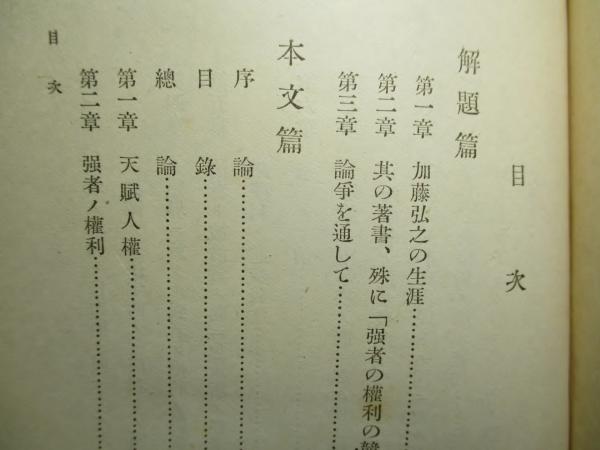 目次
解題篇
第一章 加藤弘之の生涯……………
第二章 其の著書、殊に「强者の權利の
第三章 論爭を通して……………
本文篇
序論……………
目錄……………
總論……………
第一章 天賦人權……………
第二章 强者ノ權利……………
目次